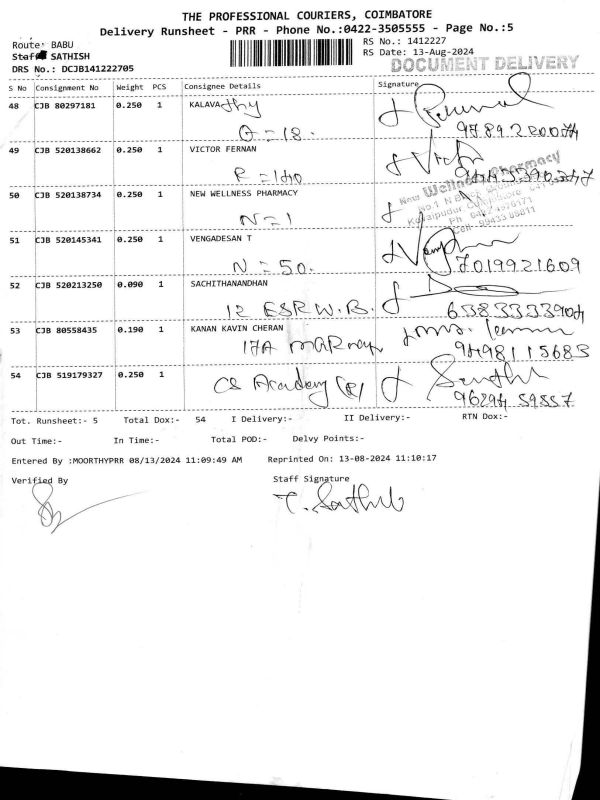 THE PROFESSIONAL COURIERS, COIMBATORE
Delivery Runsheet - PRR - Phone No.:0422-3505555 - Page No.:5
Route: BABU
RS No.: 1412227
Staff SATHISH
RS Date: 13-Aug-2024
DRS No.: DCJB141222705
DOCUMENT DELIVERY
S No Consignment No Weight PCS Consignee Details Signature
48 CJB 80297181 0.250 1 KALAVAthy
O = 18.
9789220074
49 CJB 520138662 0.250 1 VICTOR FERNAN
R = 140
Victor
50 CJB 520138734 0.250 1 NEW WELLNESS PHARMACY
N = 1
New Wellness Pharmacy
51 CJB 520145341 0.250 1 VENGADESAN T
N = 50.
7019921609
52 CJB 520213250 0.090 1 SACHITHANANDHAN
12 ESR W.B.
6383333904
53 CJB 80558435 0.190 1 KANAN KAVIN CHERAN
17A MGR nagar
9498115683
54 CJB 519179327 0.250 1
CS Academy (R)
9629459557
Tot. Runsheet:- 5 Total Dox:- 54 I Delivery:- II Delivery:- RTN Dox:-
Out Time:- In Time:- Total POD:- Delvy Points:-
Entered By :MOORTHYPRR 08/13/2024 11:09:49 AM Reprinted On: 13-08-2024 11:10:17
Verified By
Staff Signature
T. Sathish